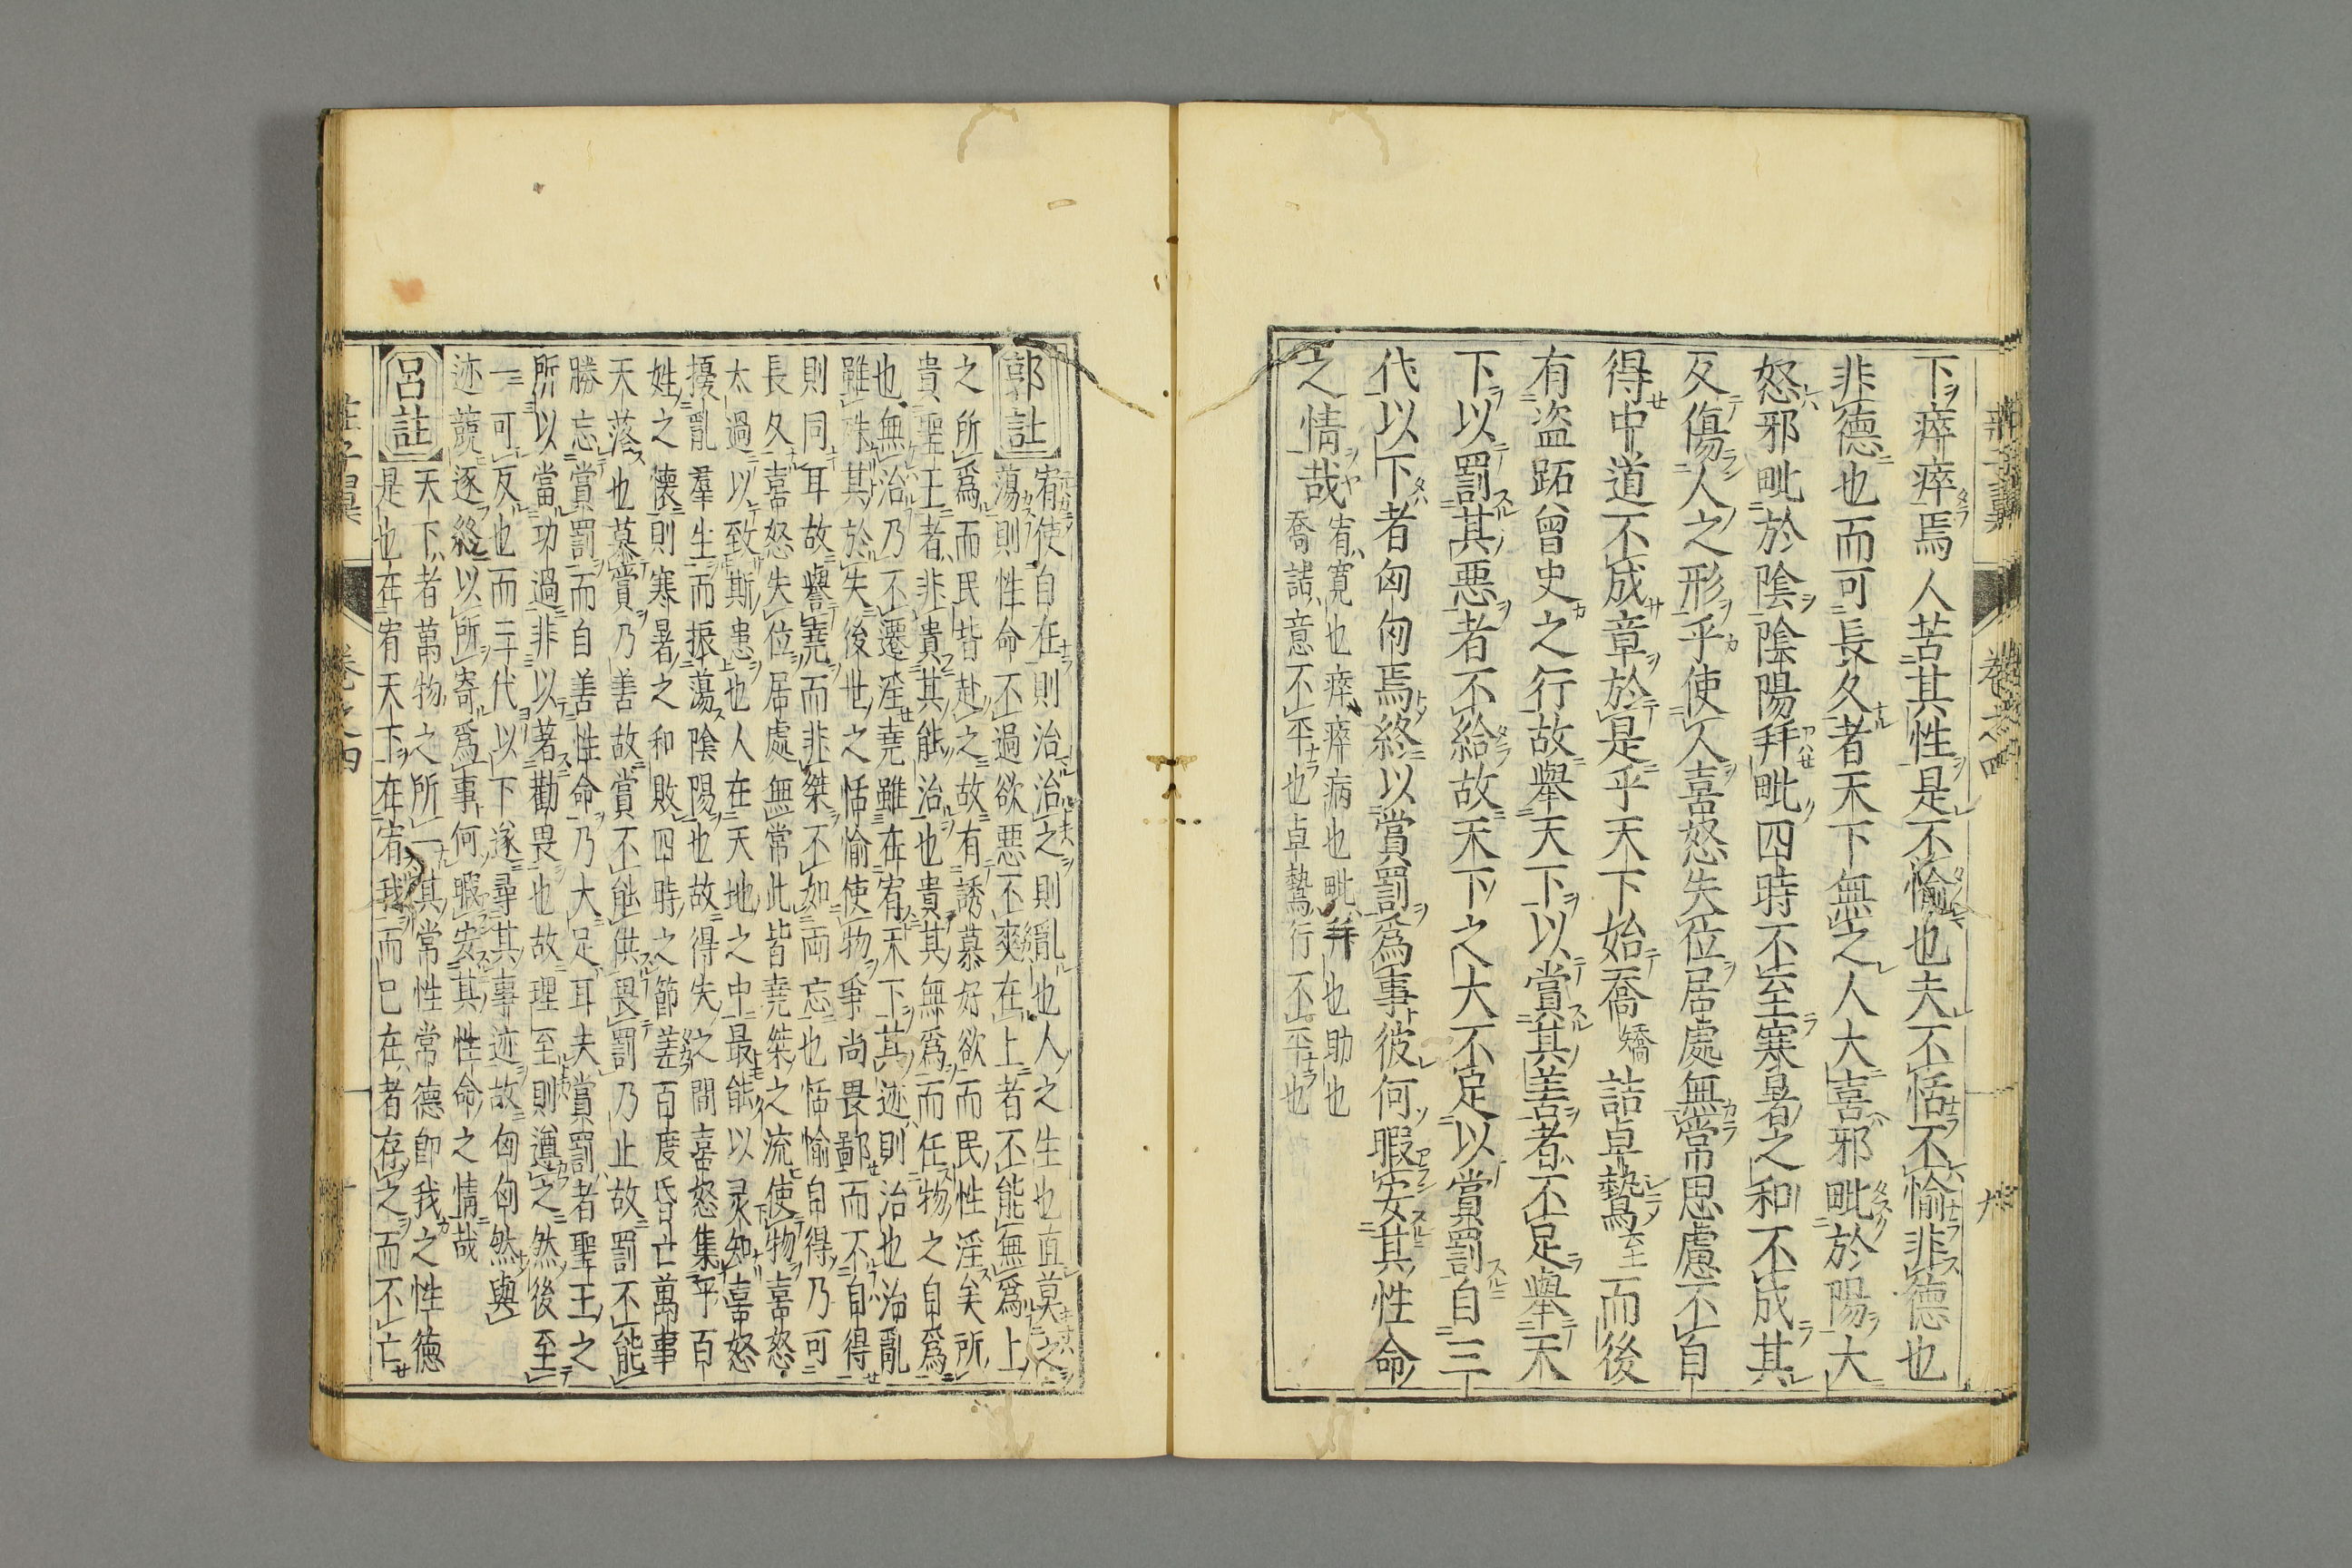 下瘁瘁焉人苦其性是不愉也夫不恬不愉非德也
非德也而可長久者天下無之人大喜邪毗於陽大
怒邪毗於陰陰陽并毗四時不至寒暑之和不成其
反傷人之形乎使人喜怒失位居處無常思慮不自
得中道不成章於是乎天下始喬矯詰卓鷙至而後
有盜跖曾史之行故舉天下以賞其善者不足舉天
下以罰其惡者不給故天下之大不足以賞罰自三
代以下者匈匈焉終以賞罰為事彼何暇安其性命
之情哉
宥寬也瘁瘁病也毗并也助也
喬詰意不平也卓鷙行不平也
郭註
宥使自在則治治之則亂也人之生也直莫之
蕩則性命不過欲惡不爽在上者不能無為上
之所為而民皆赴之故有誘慕好欲而民性淫矣所
貴聖王者非貴其能治也貴其無為而任物之自為
也無治乃不遷淫堯雖在宥天下其迹則治也治亂
雖殊其於失後世之恬愉使物爭尚畏鄙而不自得
則同耳故譽堯而非桀不如兩忘也恬愉自得乃可
長久喜怒失位居處無常此皆堯桀之流使物喜怒
太過以致斯患也人在天地之中最能以灵知喜怒
擾亂羣生而振蕩陰陽也故得失之間喜怒集乎百
姓之懷則寒暑之和敗四時之節差百度昏亡萬事
夭落也慕賞乃善故賞不能供畏罰乃止故罰不能
勝忘賞罰而自善性命乃大足耳夫賞罰者聖王之
所以當功過非以著勸畏也故理至則遺之然後至
一可反也而三代以下遂尋其事迹故匈匈然與
迹競逐終以所寄為事何暇安其性命之情哉
呂註
天下者萬物之所一其常性常德卽我之性德
是也在宥天下在宥我而已在者存之而不亡
莊子翼
卷之四